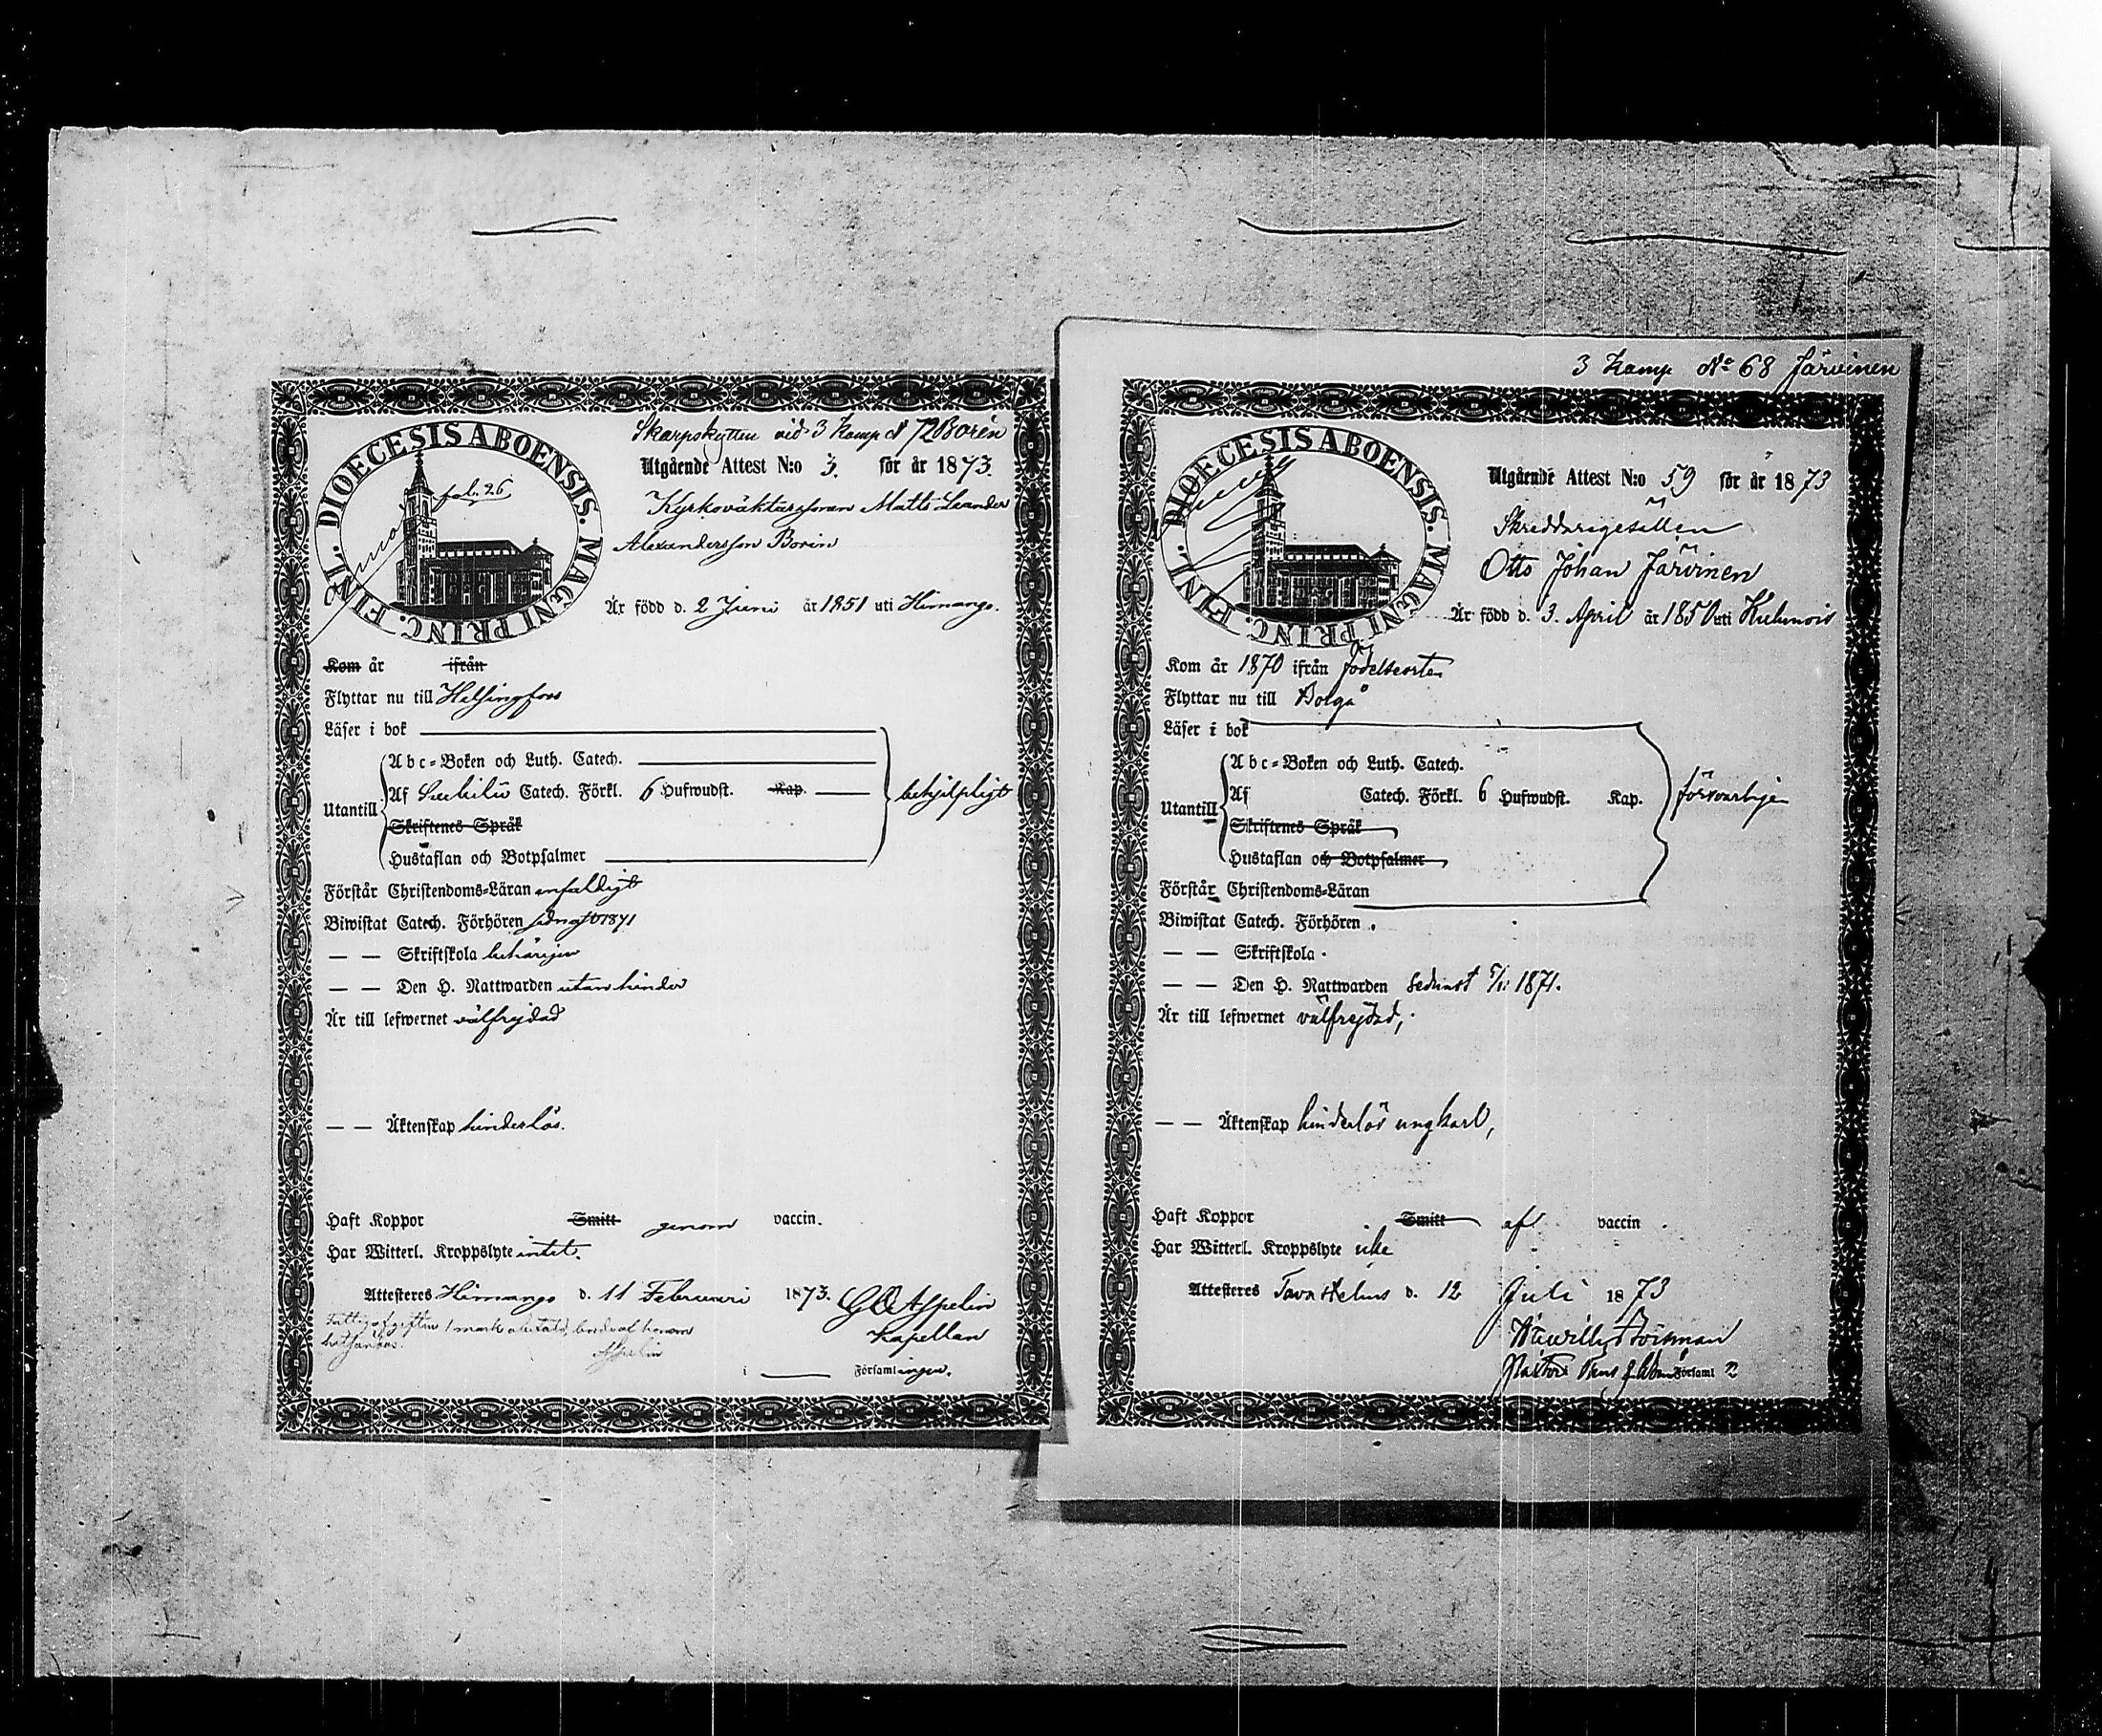 Skarpskytten vid 3 Komp N 72 Borin
DIOECESIS ABOENSIS. MAGNI PRINC. FINL.
fol. 26
Utgående Attest N:o 3. för år 1873.
Kyrkoväktarssonen Matts Leander
Alexandersson Borin
Är född d. 2 Juni år 1851 uti Himango.
Kom år ifrån
Flyttar nu till Helsingfors
Läser i bok
Abc-Boken och Luth. Catech.
Utantill Af Catech. Förkl. 6 Hufwudst. Kap. behjelpligt
Skriftenes Språk
Hustaflan och Botpsalmer
Förstår Christendoms-Läran enfaldigt
Biwistat Catech. Förhören sednast 1871
— — Skriftskola behörigen
— — Den H. Nattwarden utan hinder
Är till lefwernet välfrejdad
— — Äktenskap hinderlös.
Haft Koppor Smitt genom vaccin.
Har Witterl. Kroppslyte intet.
Attesteres Himango d. 11 Februari 1873. Aspelin
Kapellan
1 mark
Aspelin
i Församlingen.
3 Komp No 68 Järvinen
DIOECESIS ABOENSIS. MAGNI PRINC. FINL.
Utgående Attest N:o 59 för år 1873
Skreddaregesällen
Otto Johan Järvinen
Är född d. 3. April år 1850 uti Kuhmois
Kom år 1870 ifrån födelseorten
Flyttar nu till Borgå
Läser i bok
Abc-Boken och Luth. Catech.
Utantill Af Catech. Förkl. 6 Hufwudst. Kap. försvarligen
Skriftenes Språk
Hustaflan och Botpsalmer
Förstår Christendoms-Läran
Biwistat Catech. Förhören
— — Skriftskola
— — Den H. Nattwarden sednast 1871.
Är till lefwernet välfrejdad,
— — Äktenskap hinderlös ungkarl,
Haft Koppor Smitt af vaccin
Har Witterl. Kroppslyte icke
Attesteres Tavastehus d. 12 Juli 1873
Pastor Församl